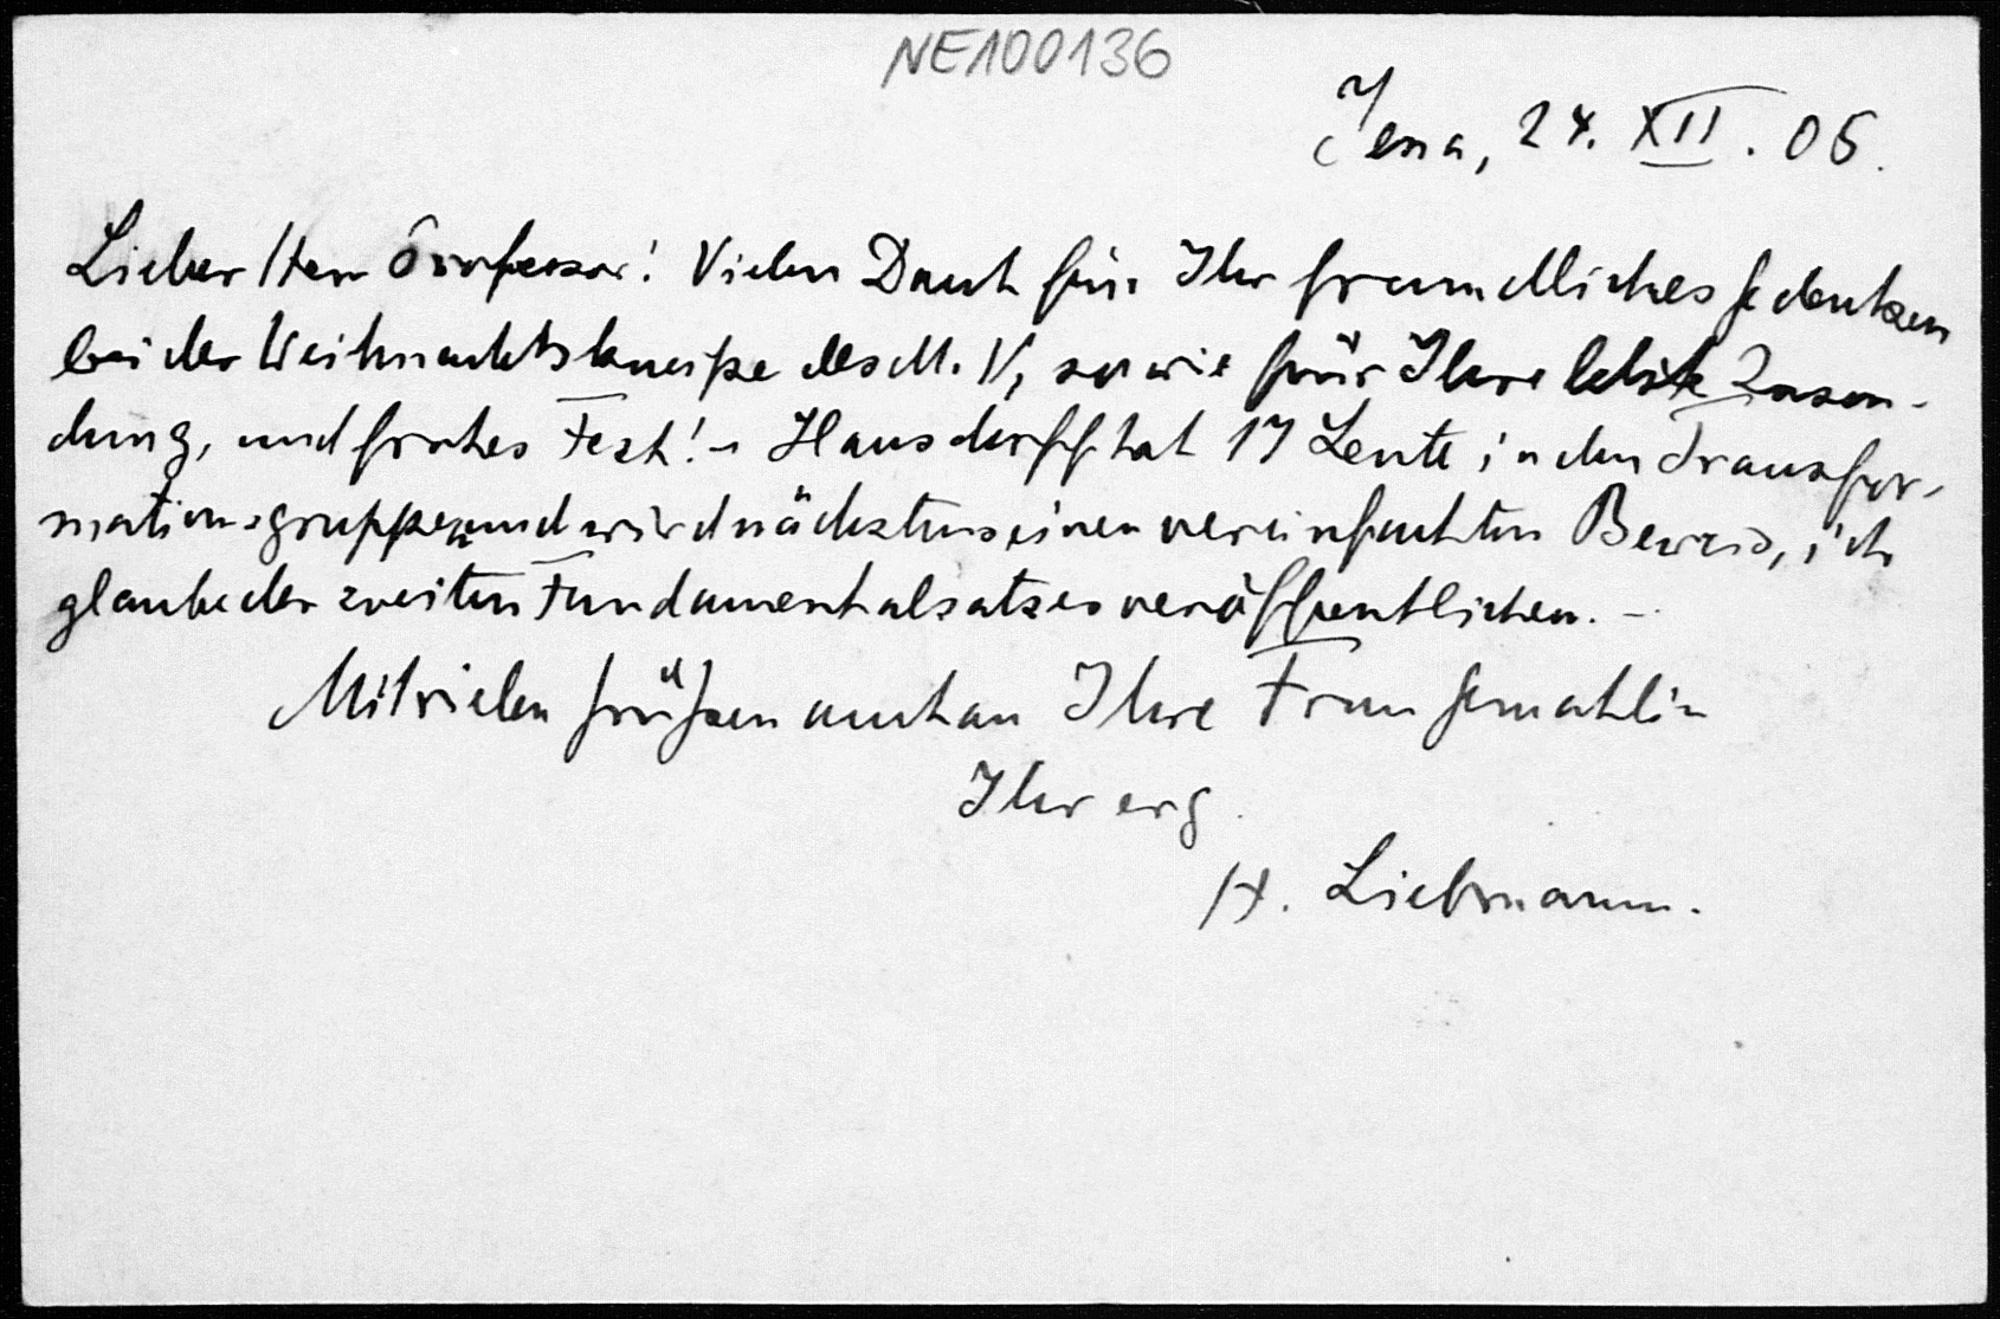 NE100136
Jena, 24. XII. 05.
Lieber Herr Professor! Vielen Dank für Ihr freundliches Gedenken
bei der Weihnachtskneipe des M. V, sowie für Ihre letzte Zusen-
dung, und frohes Fest! - Hausdorff hat 17 Leute in den Transfor-
mationsgruppen und wird nächstens einen vereinfachten Beweis, ich
glaube des zweiten Fundamentalsatzes veröffentlichen. -
Mit vielen Grüßen auch an Ihre Frau Gemahlin
Ihr erg.
H. Liebmann.